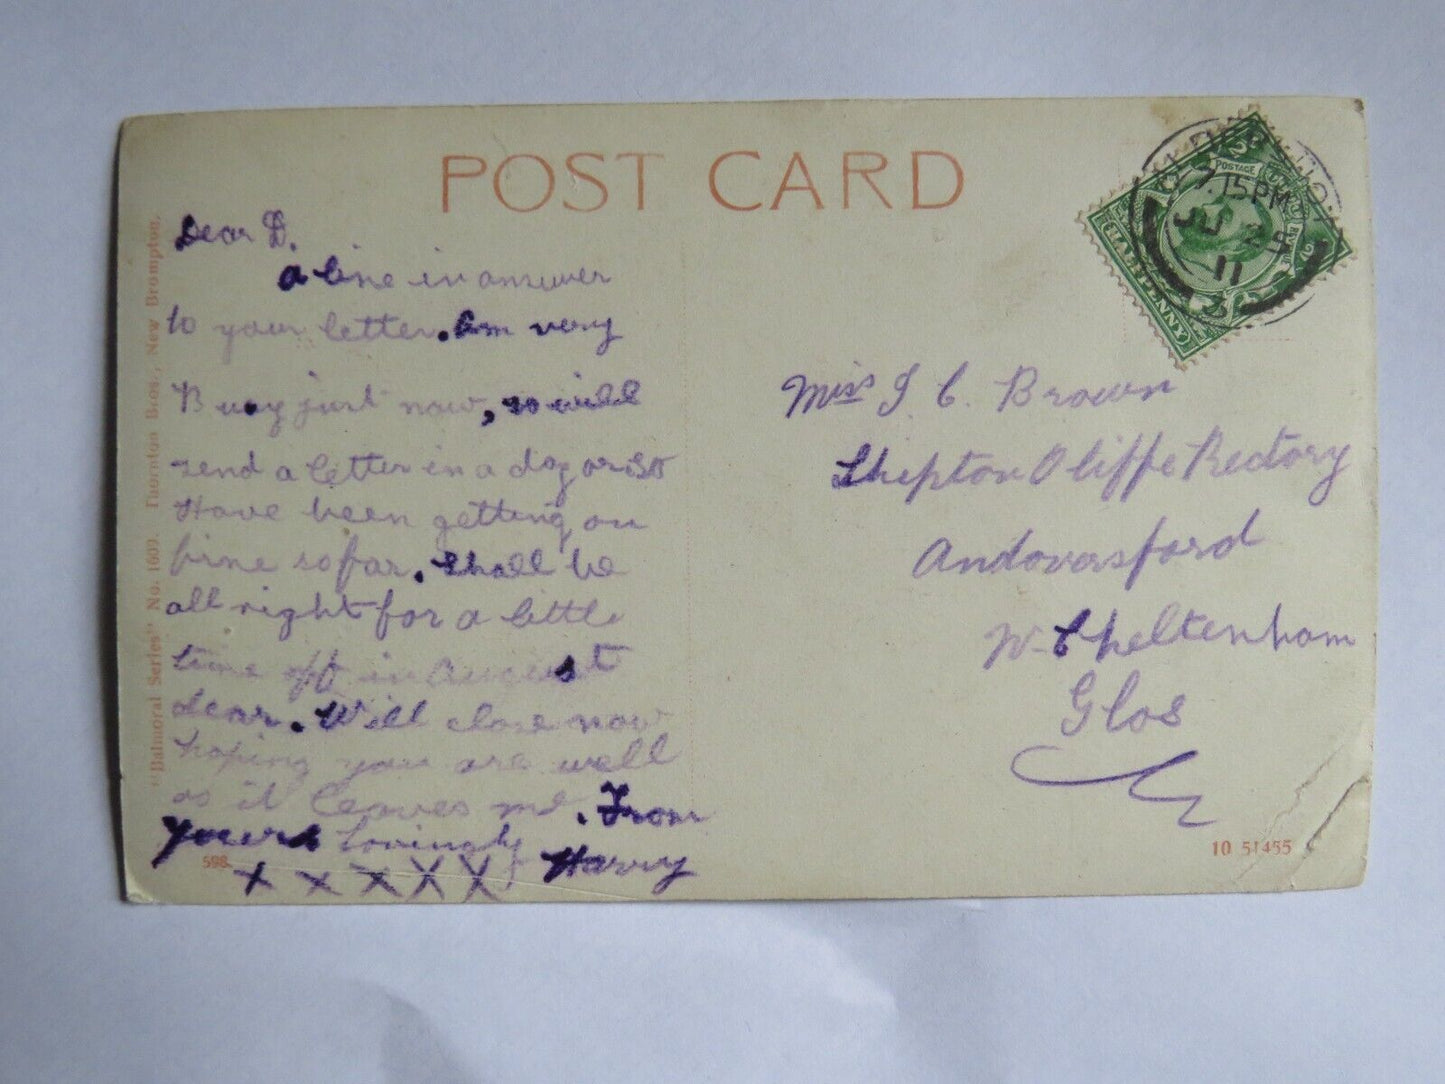 POST CARD
Dear D.
a line in answer
to your letter. Am very
Busy just now, so will
send a letter in a day or so
Have been getting on
fine so far. shall be
all right for a little
time off in August
dear. Will close now
hoping you are well
as it leaves me. From
yours lovingly
Harry
x x x x x
Miss J. C. Brown
Shipton Oliffe Rectory
Andoversford
Nr Cheltenham
Glos
"Balmoral Series" No. 1609. Thornton Bros., New Brompton.
598
10 51455
POSTAGE
HALFPENNY
7.15PM
JU 24
11
3